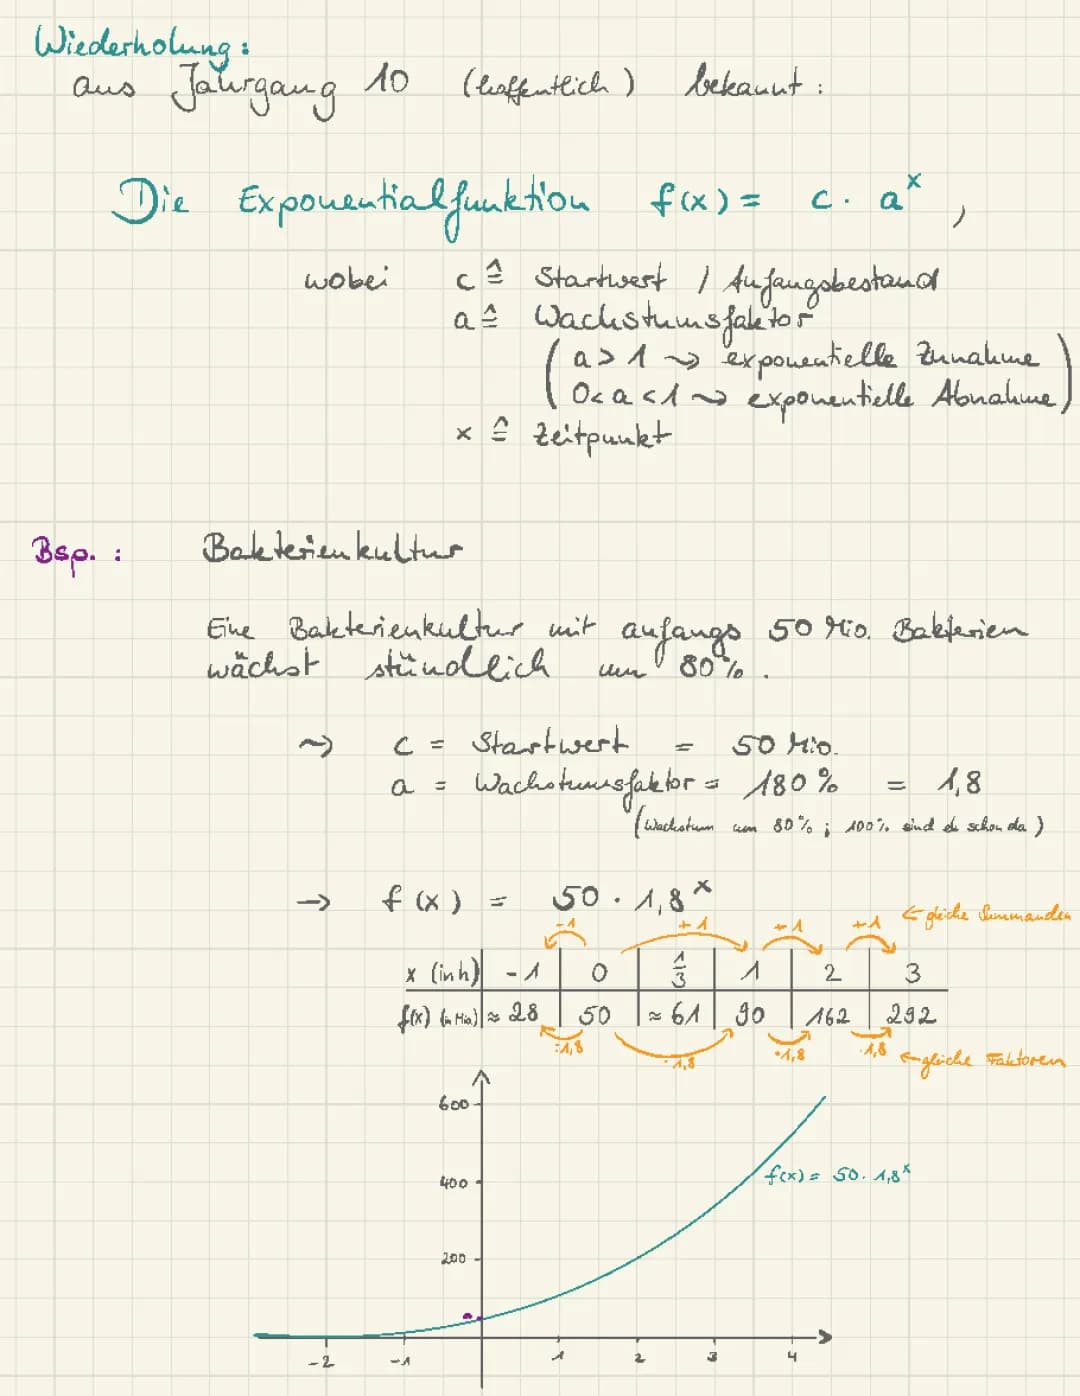 Wiederholung:
aus Jahrgang 10 (hoffentlich) bekannt:
Die Exponentialfunktion f(x) = c · a^x,
wobei c ≙ Startwert / Anfangsbestand
a ≙ Wachstumsfaktor
(a > 1 ⇝ exponentielle Zunahme
0 < a < 1 ⇝ exponentielle Abnahme)
x ≙ Zeitpunkt
Bsp.: Bakterienkultur
Eine Bakterienkultur mit anfangs 50 Mio. Bakterien
wächst stündlich um 80%.
⇝ c = Startwert = 50 Mio.
a = Wachstumsfaktor = 180% = 1,8
(Wachstum um 80%; 100% sind da schon da)
→ f(x) = 50 · 1,8^x
-1 +1 +1 +1 ← gleiche Summanden
x (in h) -1 0 1/3 1 2 3
f(x) (in Mio.) ≈ 28 50 ≈ 61 90 162 292
:1,8 ·1,8 ·1,8 ·1,8 ← gleiche Faktoren
600
f(x) = 50 · 1,8^x
400
200
-2 -1 1 2 3 4